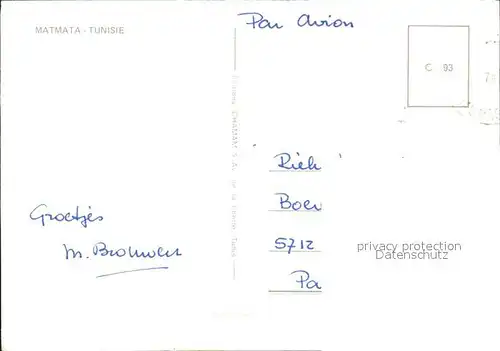 MATMATA - TUNISIE
Par Avion
C 93
Groetjes
M. Brouwer
Riek
Boer
5712
Pa
privacy protection
Datenschutz